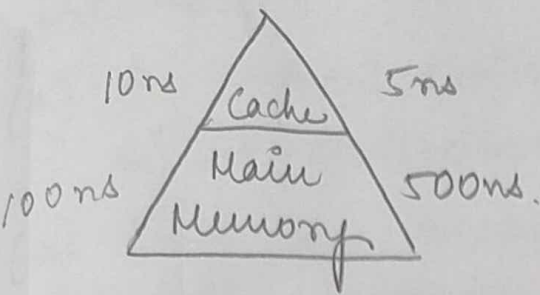 10ns
Cache
5ns
100ns
Main
Memory
500ns.